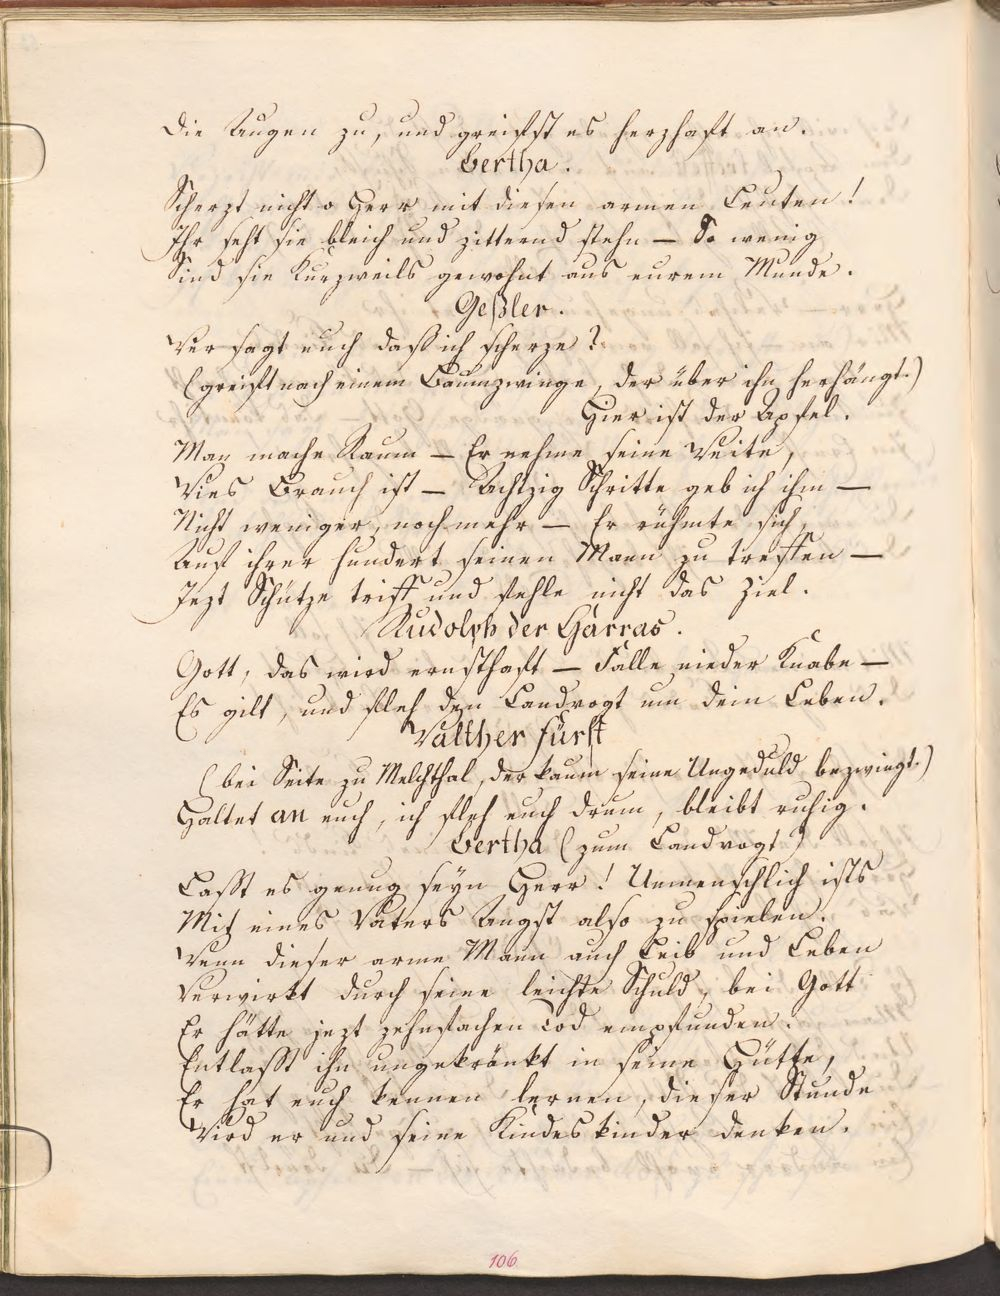 die Augen zu, und greifst es herzhaft an.
Bertha.
Scherzt nicht o Herr mit diesen armen Leuten!
Ihr seht sie bleich und zitternd stehn — So wenig
Sind sie Kurzweils gewohnt aus eurem Munde.
Geßler.
Wer sagt euch daß ich scherze?
(greift nach einem Baumzweige, der über ihn herhängt.)
Hier ist der Apfel.
Man mache Raum — Er nehme seine Weite,
Wies Brauch ist — Achtzig Schritte geb ich ihm —
Nicht weniger, noch mehr — Er rühmte sich,
Auf ihrer hundert seinen Mann zu treffen —
Jezt Schütze triff und fehle nicht das Ziel.
Rudolph der Harras.
Gott, das wird ernsthaft — Falle nieder Knabe —
Es gilt, und fleh den Landvogt um dein Leben.
Walther Fürst
(bei Seite zu Melchthal, der kaum seine Ungeduld bezwingt.)
Haltet an euch, ich fleh euch drum, bleibt ruhig.
Bertha (zum Landvogt)
Laßt es genug seyn Herr! Unmenschlich ists
Mit eines Vaters Angst also zu spielen.
Wenn dieser arme Mann auch Leib und Leben
Verwirkt durch seine leichte Schuld, bei Gott
Er hätte jezt zehnfachen Tod empfunden.
Entlaßt ihn ungekränkt in seine Hütte,
Er hat euch kennen lernen, dieser Stunde
Wird er und seine Kindeskinder denken.
106